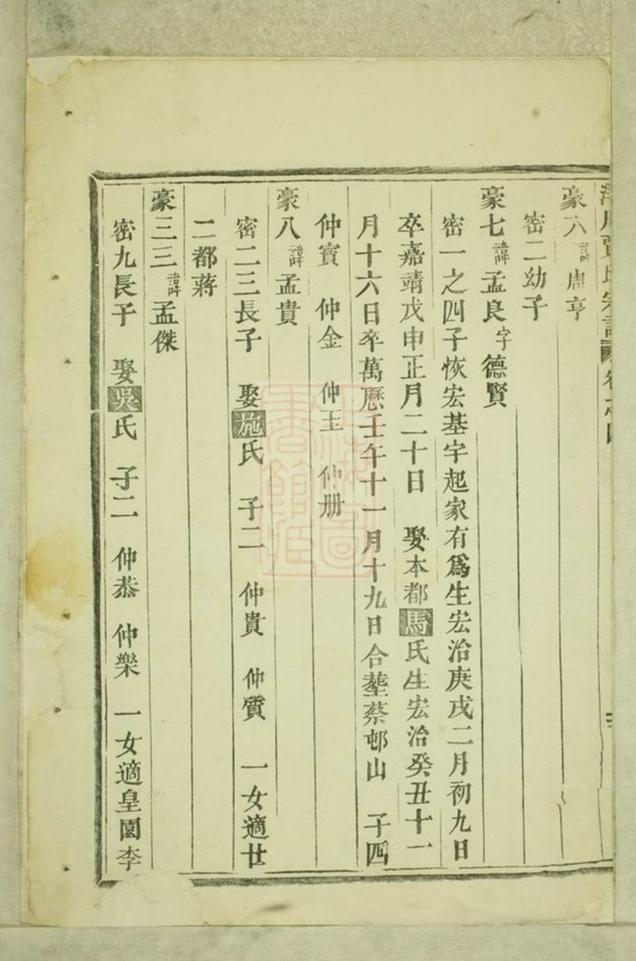 氏宗譜 卷之四
豪六 諱周亨
密二幼子
豪七 諱孟良 字德賢
密一之四子恢宏基宇起家有爲生宏治庚戌二月初九日
卒嘉靖戊申正月二十日 娶本都馬氏生宏治癸丑十一
月十六日卒萬曆壬午十一月十九日合塟蔡邨山 子四
仲寳 仲金 仲玉 仲册
豪八 諱孟貴
密二三長子 娶施氏 子二 仲貴 仲質 一女適廿
二都蔣
豪三三 諱孟傑
密九長子 娶吳氏 子二 仲恭 仲樂 一女適皇園李